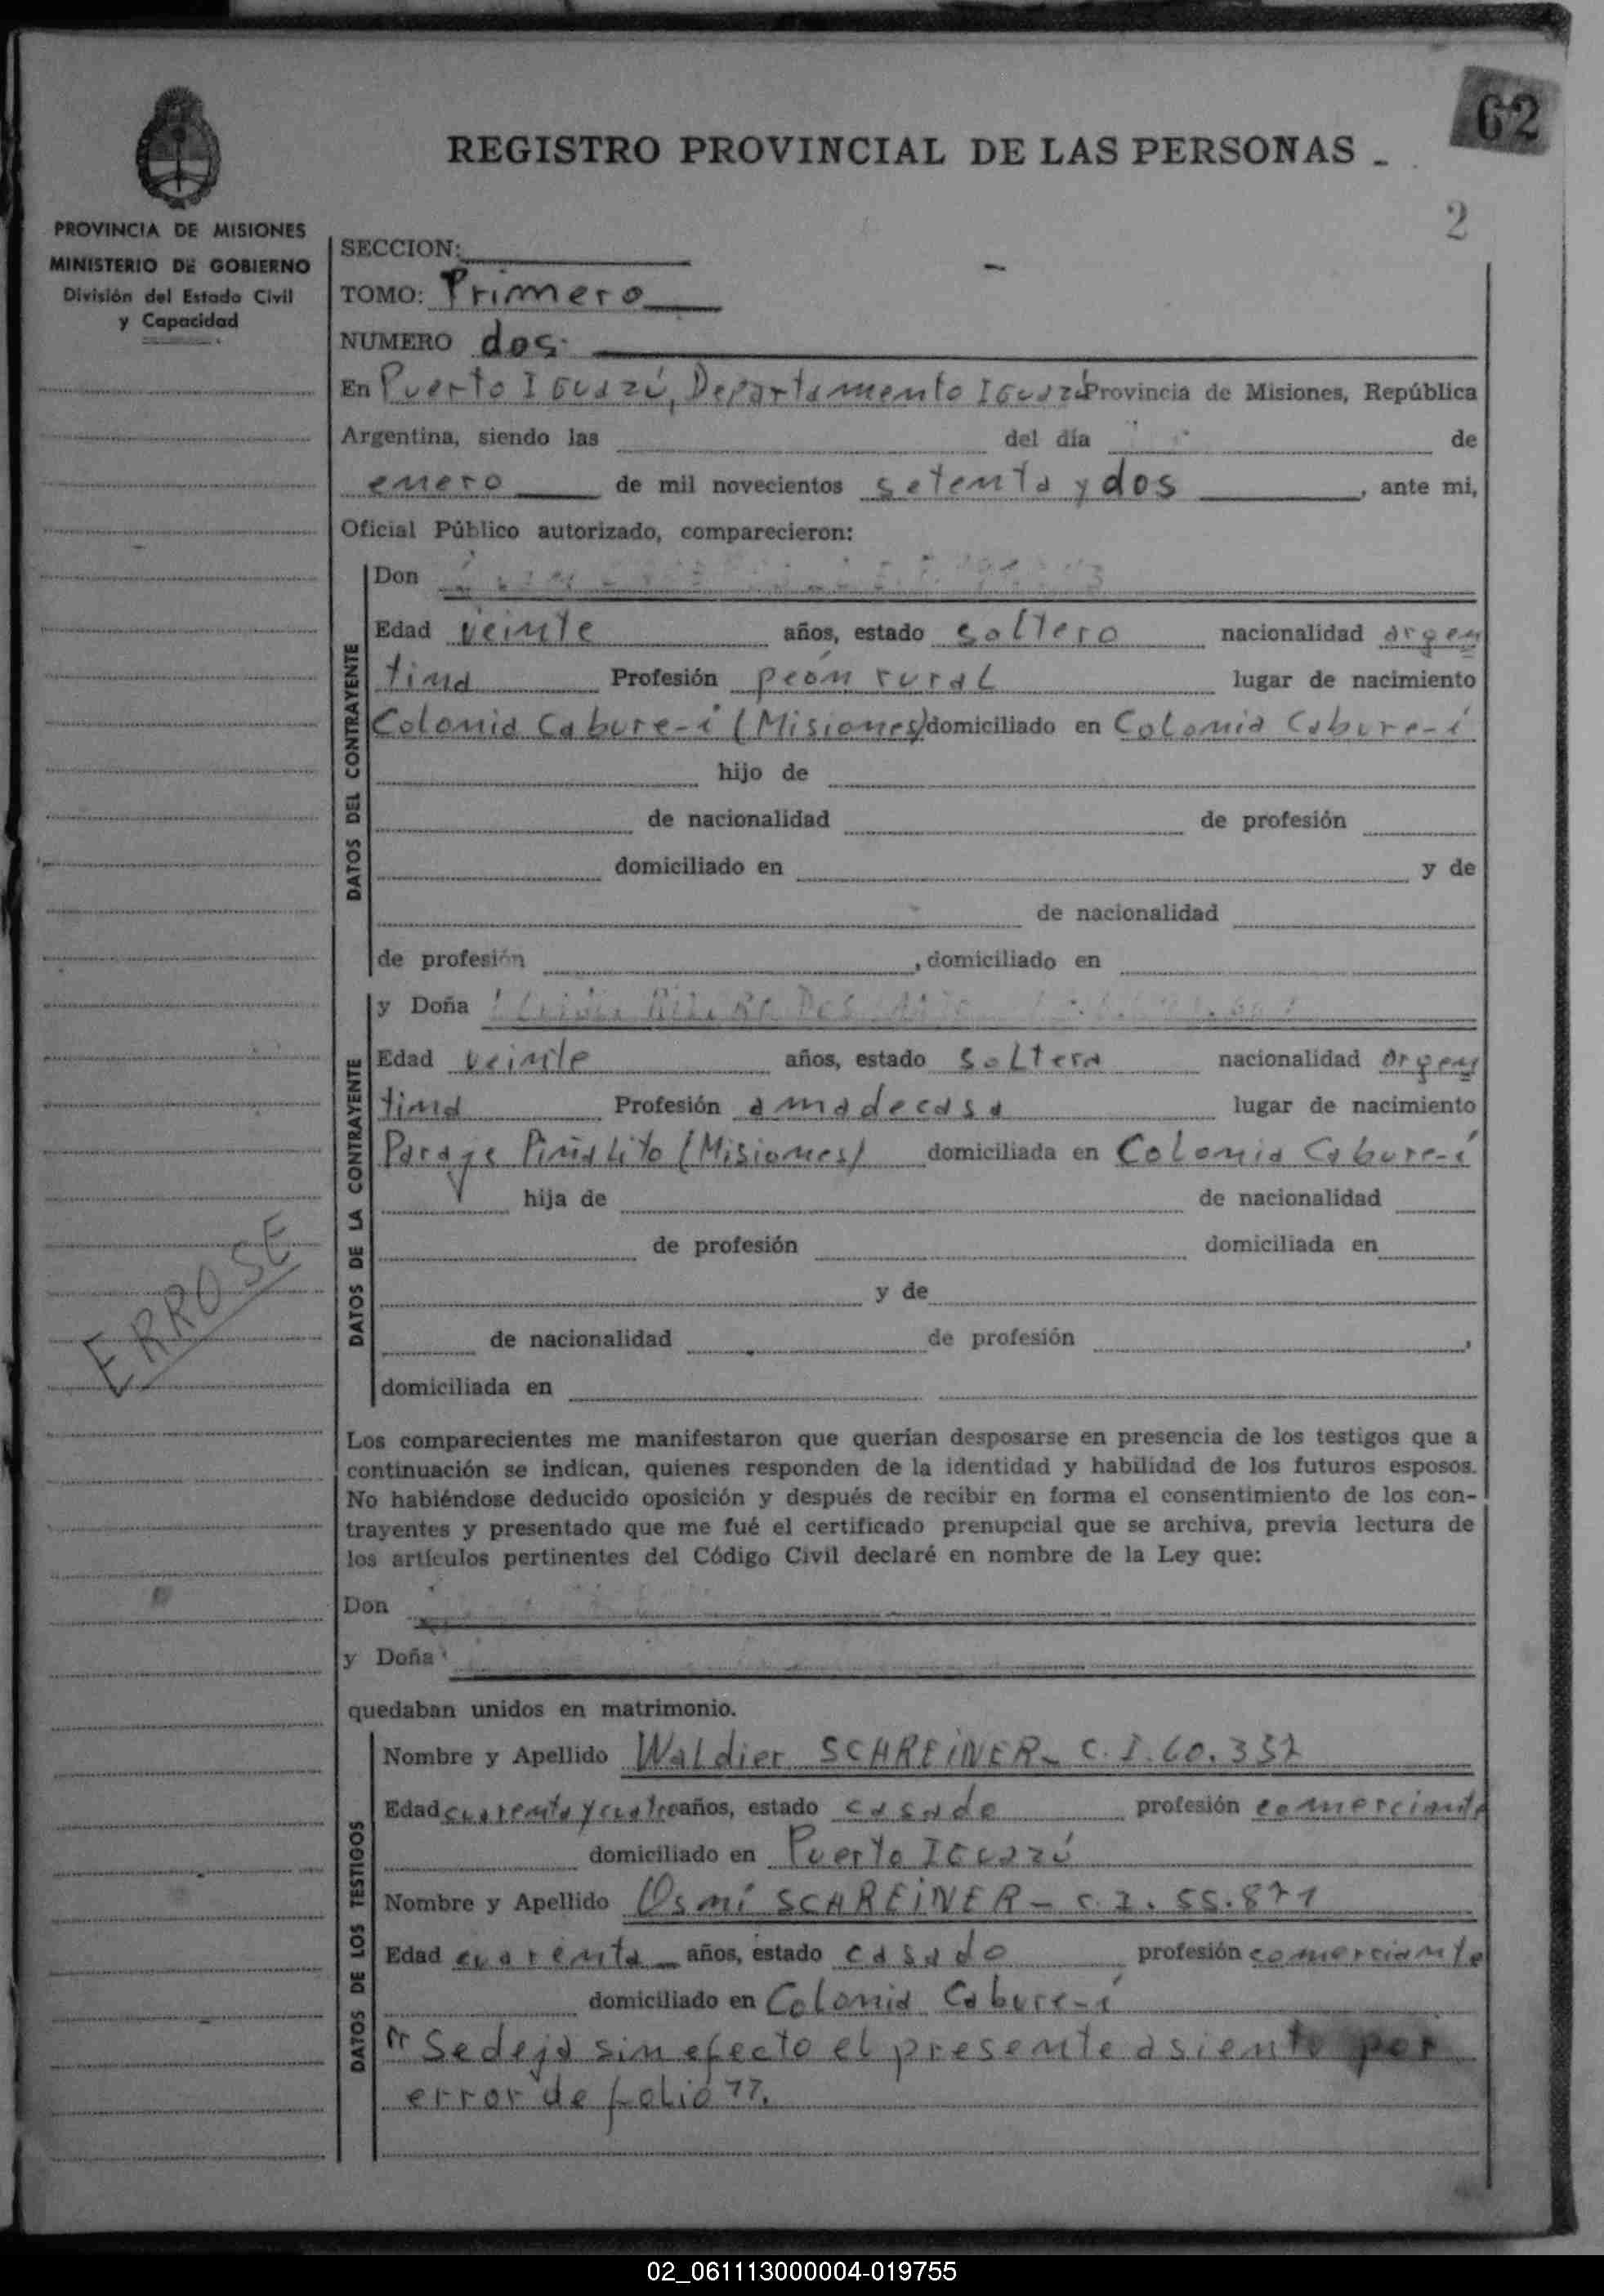 62
REGISTRO PROVINCIAL DE LAS PERSONAS -
2
PROVINCIA DE MISIONES
MINISTERIO DE GOBIERNO
División del Estado Civil
y Capacidad
SECCION:
TOMO: Primero
NUMERO dos
En Puerto Iguazú, Departamento Iguazú Provincia de Misiones, República
Argentina, siendo las del día de
enero de mil novecientos setenta y dos, ante mi,
Oficial Público autorizado, comparecieron:
DATOS DEL CONTRAYENTE
Don
Edad veinte años, estado soltero nacionalidad argen
tina Profesión peón rural lugar de nacimiento
Colonia Cabure-í (Misiones) domiciliado en Colonia Cabure-í
hijo de
de nacionalidad de profesión
domiciliado en y de
de nacionalidad
de profesión , domiciliado en
DATOS DE LA CONTRAYENTE
y Doña
Edad veinte años, estado soltera nacionalidad argen
tina Profesión ama de casa lugar de nacimiento
Paraje Piñalito (Misiones) domiciliada en Colonia Cabure-í
hija de de nacionalidad
de profesión domiciliada en
y de
de nacionalidad de profesión ,
domiciliada en
ERROSE
Los comparecientes me manifestaron que querían desposarse en presencia de los testigos que a
continuación se indican, quienes responden de la identidad y habilidad de los futuros esposos.
No habiéndose deducido oposición y después de recibir en forma el consentimiento de los con-
trayentes y presentado que me fué el certificado prenupcial que se archiva, previa lectura de
los artículos pertinentes del Código Civil declaré en nombre de la Ley que:
Don
y Doña
quedaban unidos en matrimonio.
DATOS DE LOS TESTIGOS
Nombre y Apellido Waldier SCHREINER - C.I. 60.357
Edad cuarenta y cuatro años, estado casado profesión comerciante
domiciliado en Puerto Iguazú
Nombre y Apellido Osmí SCHREINER - C.I. 55.871
Edad cuarenta años, estado casado profesión comerciante
domiciliado en Colonia Cabure-í
"Se deja sin efecto el presente asiento por
error de folio".
02_061113000004-019755